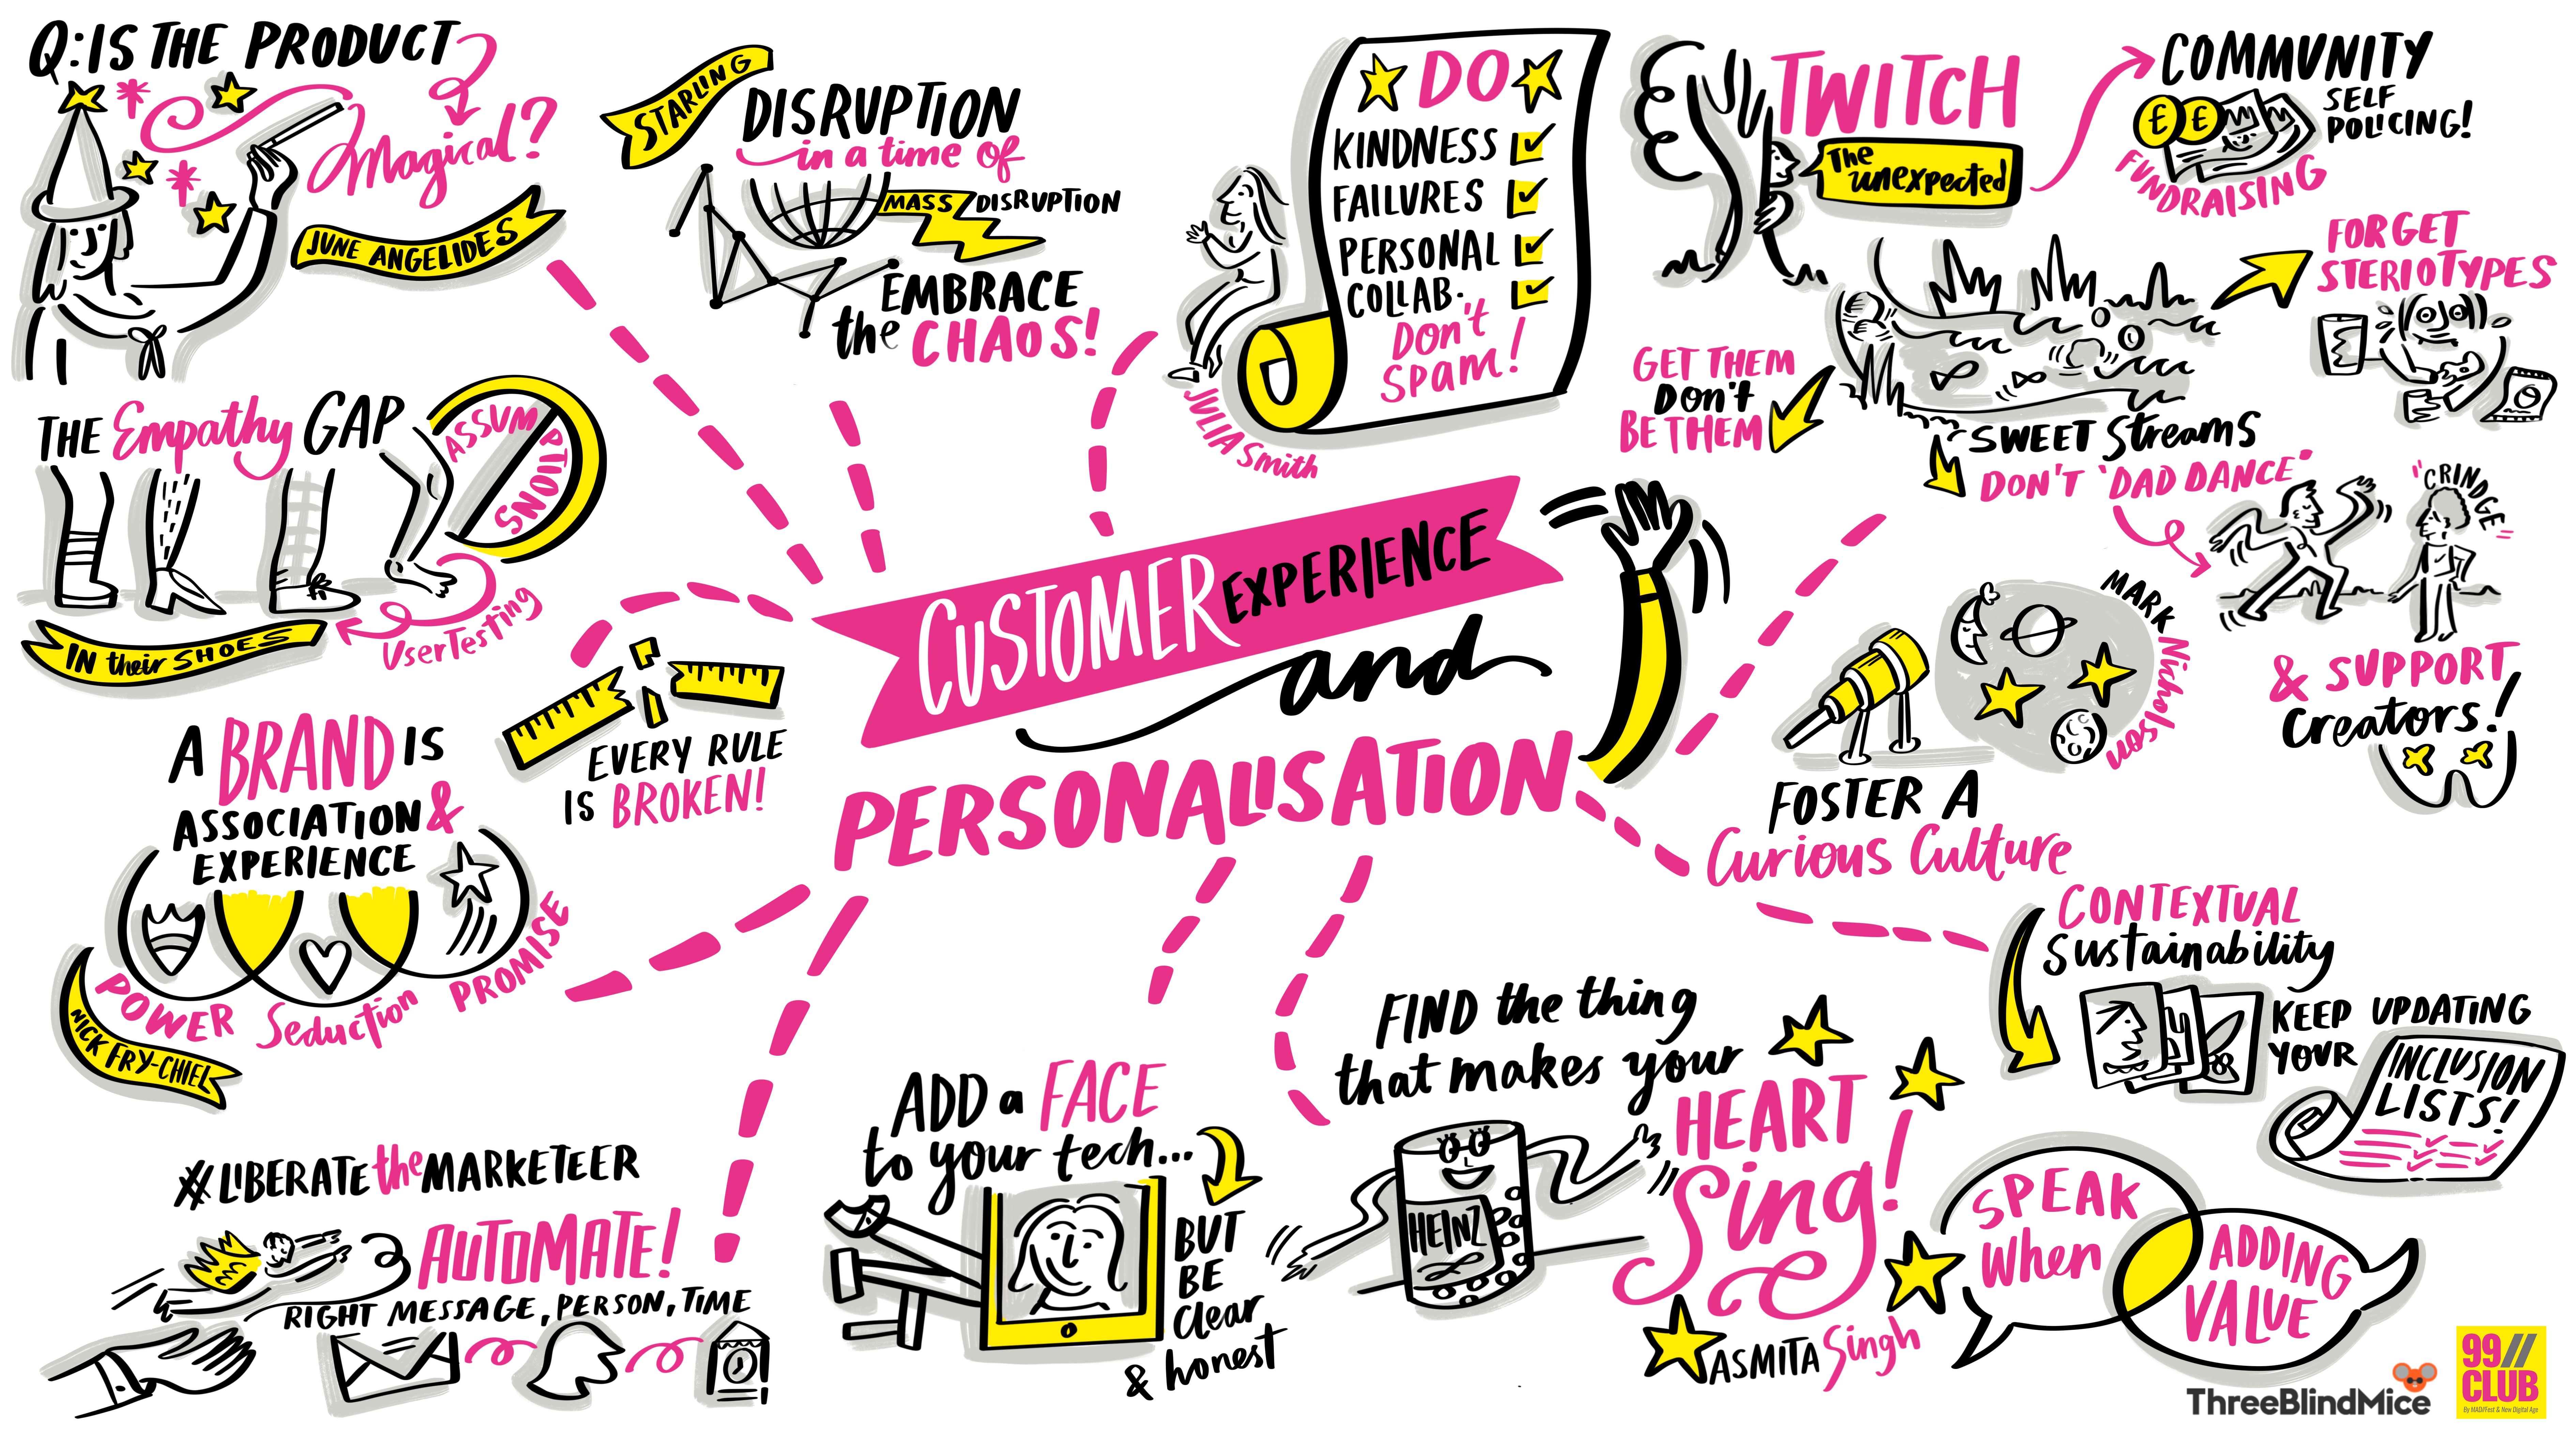 Q: IS THE PRODUCT
Magical?
JUNE ANGELIDES
STARLING
DISRUPTION
in a time of
MASS DISRUPTION
EMBRACE
the CHAOS!
DO
KINDNESS
FAILURES
PERSONAL
COLLAB.
Don't
SPAM!
JULIA Smith
TWITCH
The
unexpected
COMMUNITY
SELF
POLICING!
£ £
FUNDRAISING
FORGET
STERIOTYPES
GET THEM
Don't
BE THEM
SWEET Streams
DON'T 'DAD DANCE'
"CRINDGE"
& SUPPORT
Creators!
THE Empathy GAP
ASSUMPTIONS
UserTesting
IN their SHOES
EVERY RULE
IS BROKEN!
CUSTOMER EXPERIENCE
and
PERSONALISATION
MARK Nicholson
FOSTER A
Curious Culture
A BRAND IS
ASSOCIATION &
EXPERIENCE
POWER Seduction PROMISE
NICK FRY-CHIEL
CONTEXTUAL
Sustainability
KEEP UPDATING
YOUR
INCLUSION
LISTS!
#LIBERATE the MARKETEER
AUTOMATE!
RIGHT MESSAGE, PERSON, TIME
ADD a FACE
to your tech...
BUT
BE
Clear
& honest
FIND the thing
that makes your
HEART
Sing!
HEINZ
ASMITA Singh
SPEAK
When
ADDING
VALUE
ThreeBlindMice
99//
CLUB
By MAD//Fest & New Digital Age